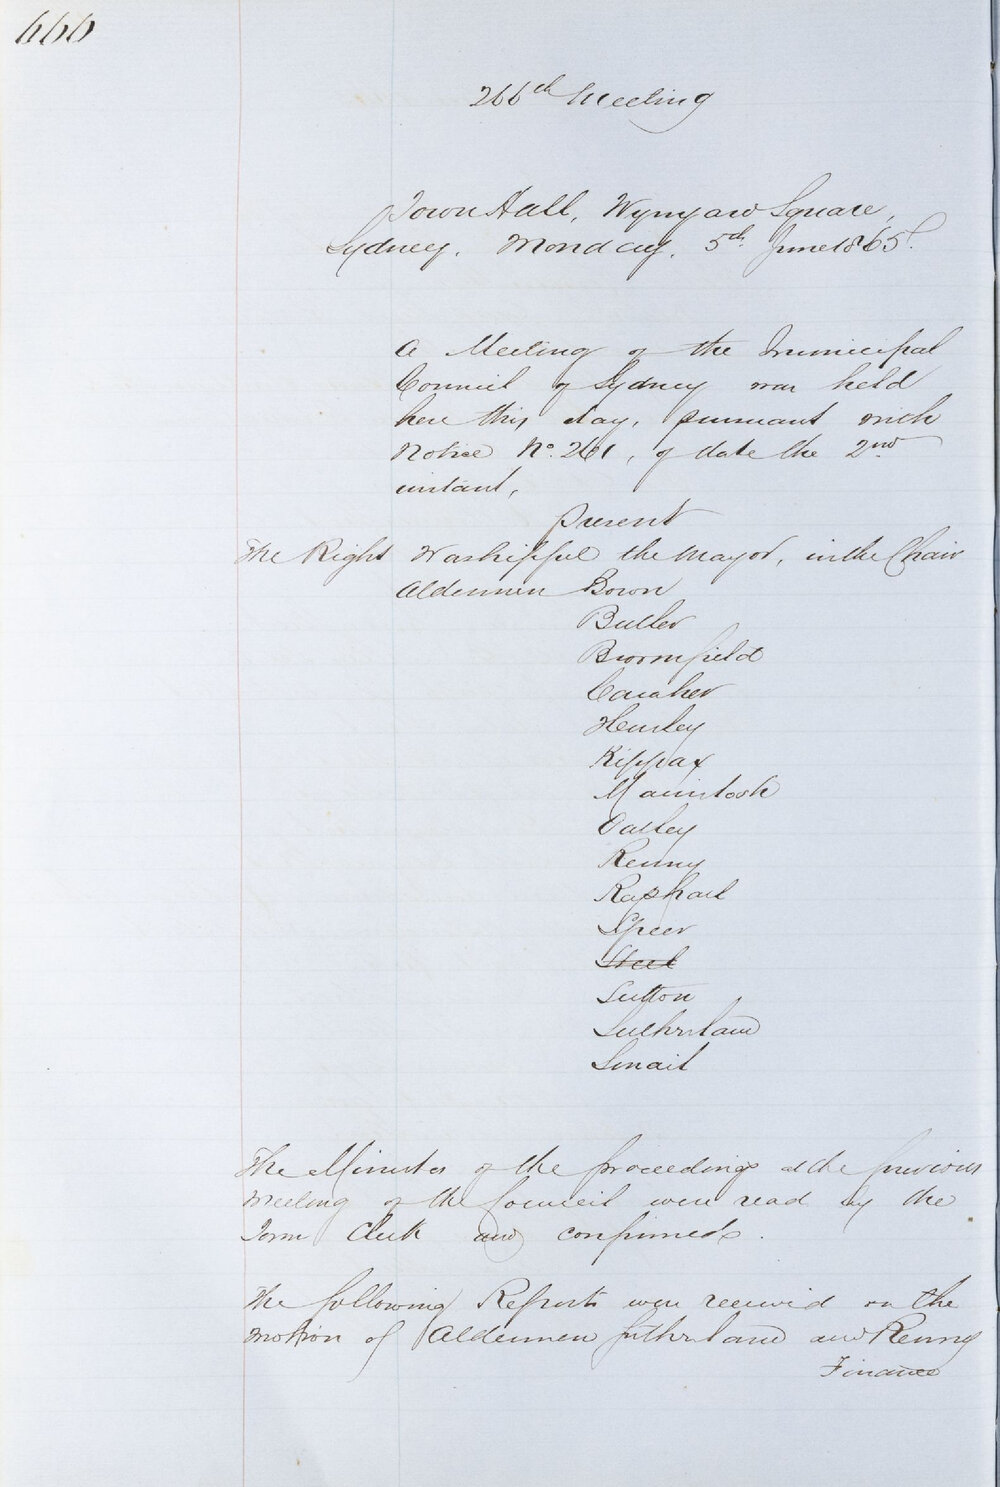 666
266th Meeting
Town Hall, Wynyard Square,
Sydney, Monday, 5th June 1865.
A Meeting of the Municipal
Council of Sydney was held
here this day, pursuant with
Notice No. 261, of date the 2nd
instant,
Present
The Right Worshipful the Mayor, in the Chair
Aldermen Bown
Butler
Broomfield
Caraher
Hurley
Kippax
Macintosh
Oatley
Renny
Raphael
Speer
Steel
Sutton
Sutherland
Smail
The Minutes of the proceedings at the previous
Meeting of the Council were read by the
Town Clerk and confirmed.
The following Reports were received on the
motion of Aldermen Sutherland and Renny
Finance